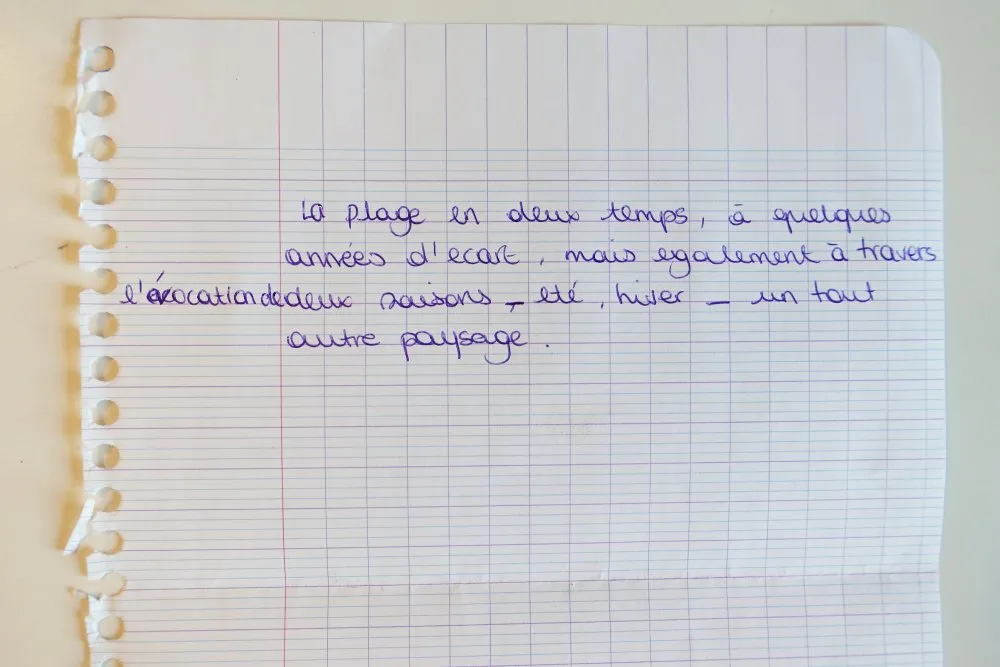 La plage en deux temps, à quelques
années d'ecart, mais egalement à travers
l'évocation de deux saisons _ eté, hiver _ un tout
autre paysage.